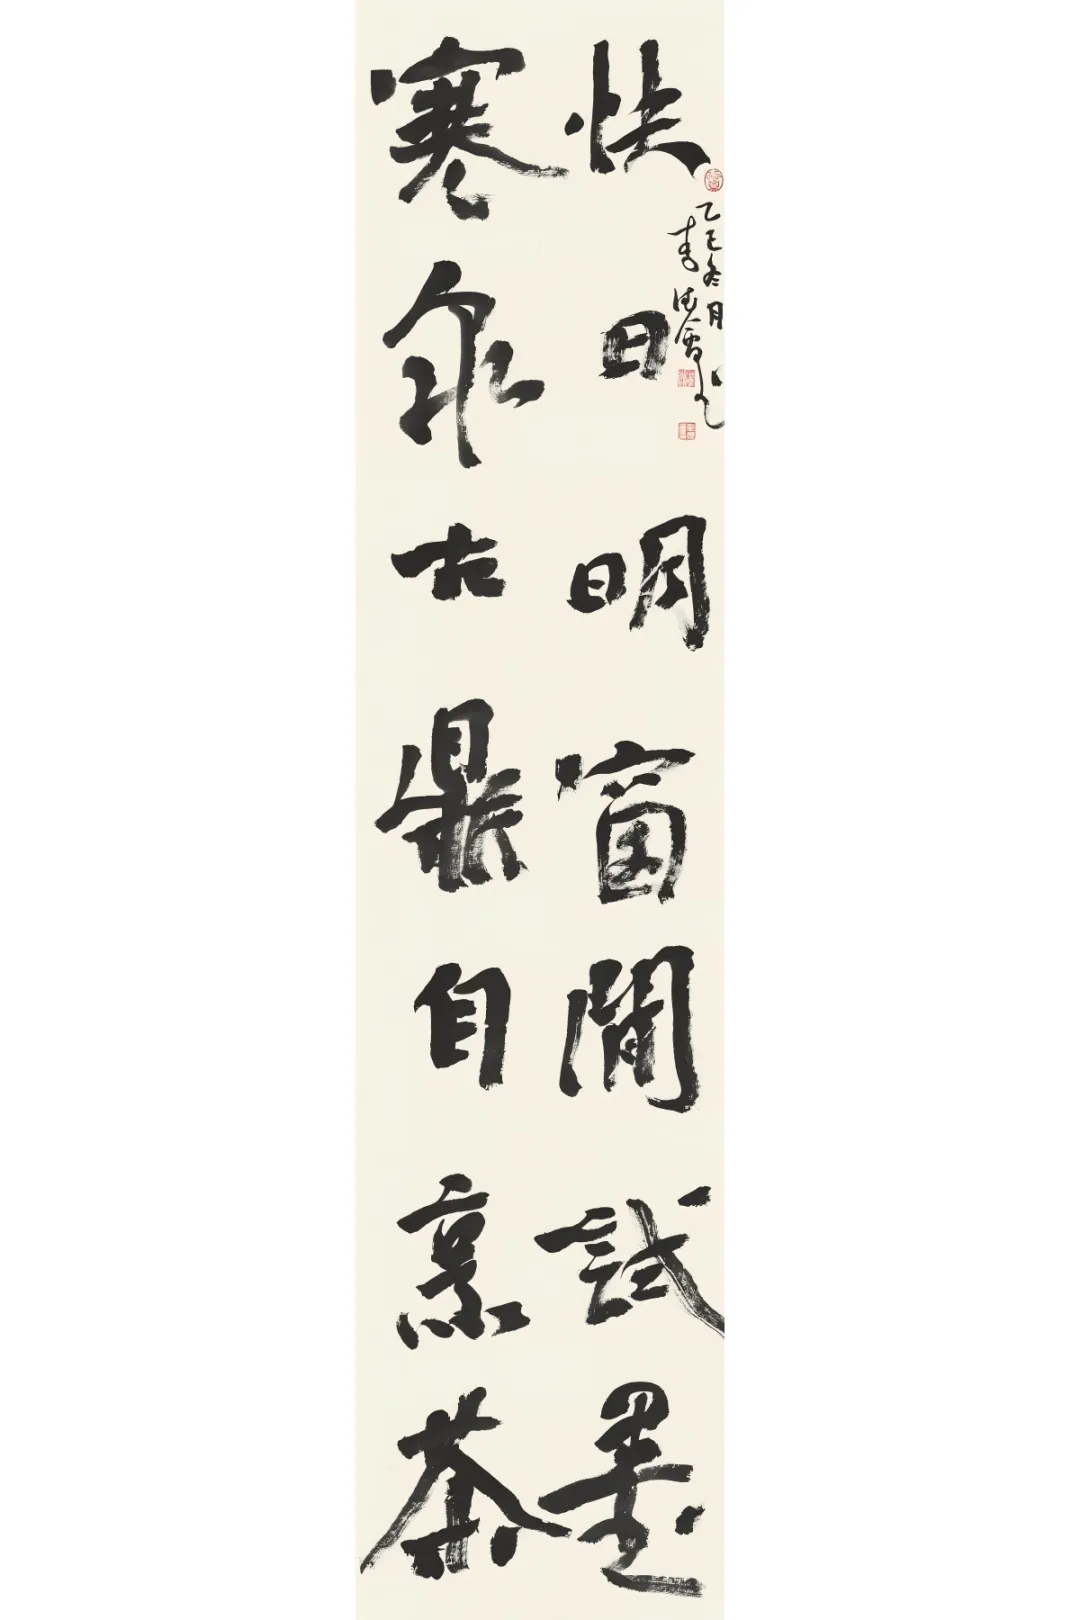 快日明窗閒試墨
寒泉古鼎自烹茶
乙巳冬月